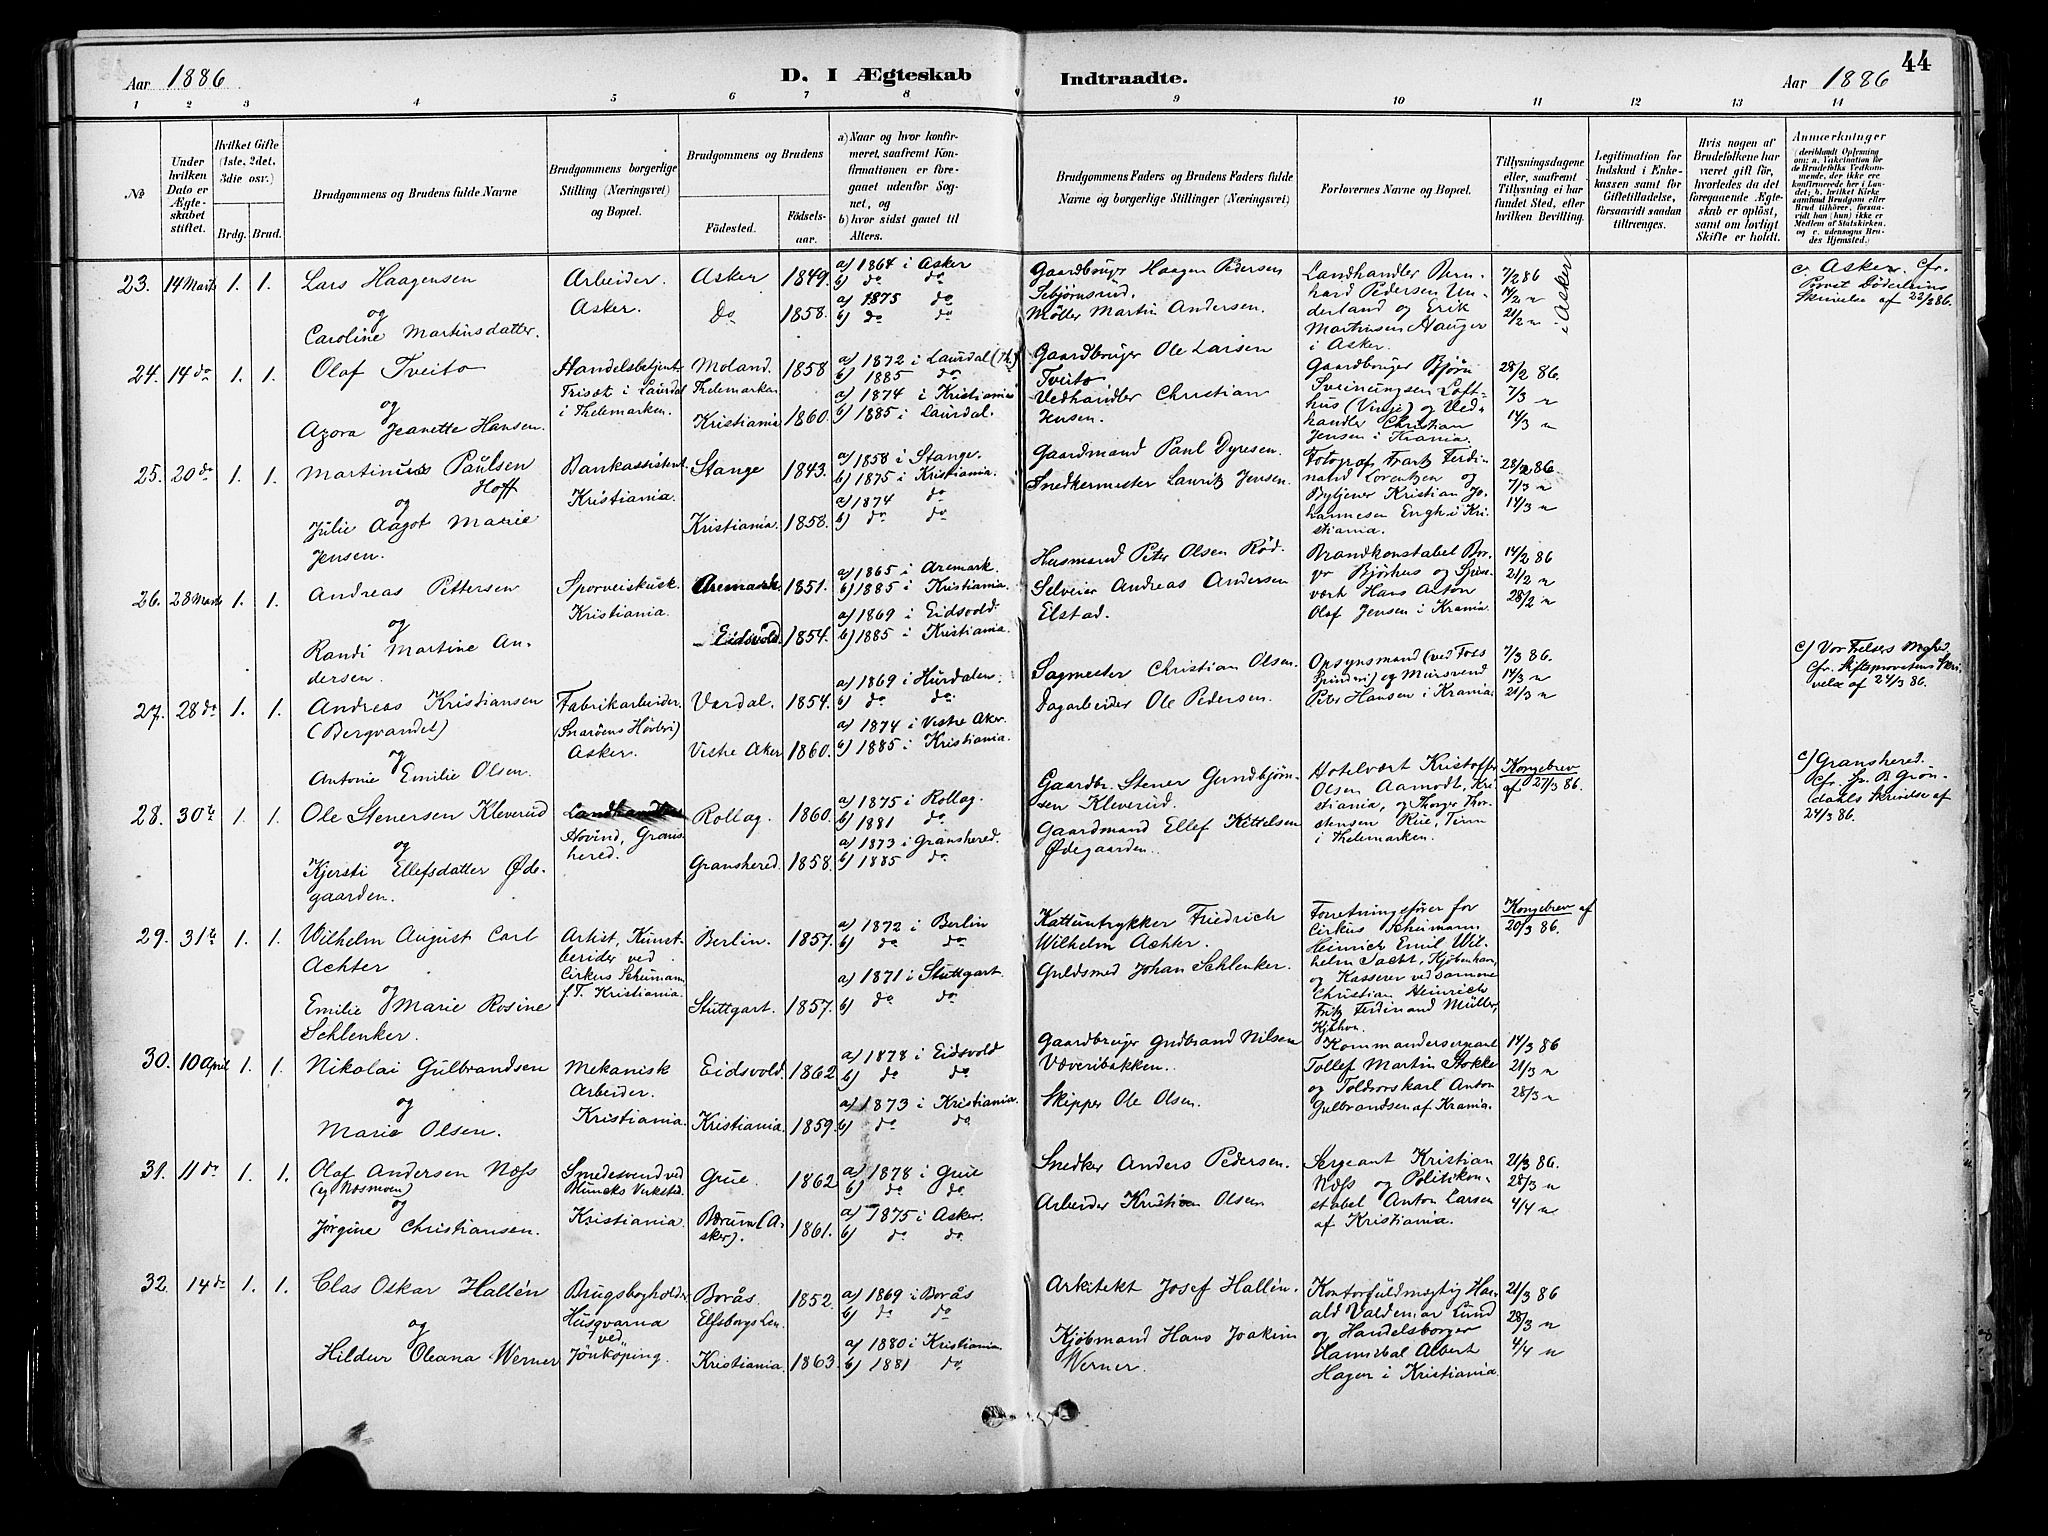 44
Aar 1886
D. I Ægteskab
Indtraadte.
Aar 1886
1 2 3 4 5 6 7 8 9 10 11 12 13 14
No
Under hvilken Dato er Ægteskabet stiftet.
Hvilket Gifte (1ste, 2det, 3die osv.)
Brdg.
Brud.
Brudgommens og Brudens fulde Navne
Brudgommens borgerlige Stilling (Næringsvei) og Bopæl.
Brudgommens og Brudens
Fødested.
Fødselsaar.
a) Naar og hvor konfirmeret, saafremt Konfirmationen er foregaaet udenfor Sognet, og
b) hvor sidst gaaet til Alters.
Brudgommens Faders og Brudens Faders fulde Navne og borgerlige Stillinger (Næringsvei)
Forlovernes Navne og Bopæl.
Tillysningsdagene eller, saafremt Tillysning ei har fundet Sted, efter hvilken Bevilling.
Legitimation for Indskud i Enkekassen samt for Giftetilladelse, forsaavidt saadan tiltrænges.
Hvis nogen af Brudefolkene har været gift før, hvorledes da det foregaaende Ægteskab er opløst, samt om lovligt Skifte er holdt.
Anmærkninger
23. 14 Marts 1. 1.
Lars Haagensen
og
Caroline Martinsdatter.
Arbeider.
Asker.
Asker 1849.
Do 1858.
a) 1864 i Asker
b) do do
a) 1875 do
b) do do
Gaardbruger Haagen Pedersen
Sebjørnsrud.
Møller Martin Andersen.
Landhandler Bern-
hard Pedersen Un-
derland og Erik
Martinsen Hauger
i Asker.
7/2 86
14/2 "
21/2 "
i Asker
c. Asker. cfr.
Provst Döderleins
Skrivelse af 22/2 86.
24. 14 do 1. 1.
Olaf Tveito
og
Azora Jeanette Hansen.
Handelsbetjent
Triset i Laurdal
i Thelemarken.
Moland
Thelemarken 1858
Kristiania 1860.
a) 1872 i Laurdal (Th.)
b) 1885 do
a) 1874 i Kristiania
b) 1885 i Laurdal.
Gaardbruger Ole Larsen
Tveito
Vedhandler Christian
Jensen.
Gaardbruger Bjørn
Sveinungsen Loft-
hus (Vinje) og Ved-
handler Christian
Jensen i Krania.
28/2 86.
7/3 "
14/3 "
25. 20 do 1. 1.
Martinus Paulsen
Hoff
og
Julie Aagot Marie
Jensen.
Bankassistent
Kristiania.
Stange 1843.
Kristiania. 1858.
a) 1858 i Stange.
b) 1875 i Kristiania.
a) 1874 do
b) do do
Gaardmand Paul Dyresen.
Snedkermester Lauritz Jensen.
Fotograf Frantz Ferdi-
nand Lorentzen og
Bytjener Kristian Jo-
hannesen Engh i Kri-
stiania.
28/2 86.
7/3 "
14/3 "
26. 28 Marts 1. 1.
Andreas Pettersen
og
Randi Martine An-
dersen.
Sporveiskusk.
Kristiania.
Aremark. 1851.
Eidsvold. 1854.
a) 1865 i Aremark.
b) 1885 i Kristiania.
a) 1869 i Eidsvold.
b) 1885 i Kristiania.
Husmand Peter Olsen Rød.
Selveier Andreas Andersen
Elstad.
Brandkonstabel Bor-
Bjørhus og
Hans Anton
Olaf Jensen i Krania.
14/2 86
21/2 "
28/2 "
27. 28 do 1. 1.
Andreas Kristiansen
(Bergvandet)
og
Antonie Emilie Olsen.
Fabrikarbeider.
(Snarøens Høvlri)
Asker.
Vardal. 1854.
Vestre Aker 1860.
a) 1869 i Hurdalen.
b) do do
a) 1874 i Vestre Aker.
b) 1885 i Kristiania.
Sagmester Christian Olsen.
Dagarbeider Ole Pedersen.
Opsynsmand (ved Foss
Spinderi) og Mursvend
Peter Hansen i Krania.
7/3 86.
14/3 "
21/3 "
c) Vor Frelsers Mghed
cfr. Stiftsprovstens Skri-
velse af 24/3 86.
28. 30te 1. 1.
Ole Stenersen Kleverud
og
Kjersti Ellefsdatter Øde-
gaarden.
Hovind, Grans-
hered.
Rollag. 1860.
Granshered. 1858.
a) 1875 i Rollag.
b) 1881 do
a) 1873 i Granshered.
b) 1885 do
Gaardbr. Stener Gundbjørn-
sen Kleverud.
Gaardmand Ellef Kittelsen
Ødegaarden.
Hotelvært Kristoffer
Olsen Aamodt, Kri-
stiania, og Thorger Thor-
stensen Rue, Tinn
i Thelemarken.
Kongebrev
af 27/3 86.
c) Granshered.
cfr. Sp. B. Grøn-
dahls Skrivelse af
24/3 86.
29. 31te 1. 1.
Wilhelm August Carl
Achter
og
Emilie Marie Rosine
Schlenker.
Artist, Kunst-
berider ved
Cirkus Schumann
f. T. Kristiania.
Berlin. 1857.
Stuttgart. 1857.
a) 1872 i Berlin
b) do do
a) 1871 i Stuttgart.
b) do do
Kattuntrykker Friedrich
Wilhelm Achter.
Guldsmed Johan Schlenker.
Forretningsfører for
Cirkus Schumann
Heinrich Emil Wil-
helm Sacht, Kjøbenhavn,
og Kasserer ved samme
Christian Heinrich
Fritz Ferdinand Müller,
Kjbhvn.
Kongebrev af
20/3 86.
30. 10 April 1. 1.
Nikolai Gulbrandsen
og
Marie Olsen.
Mekanisk
Arbeider.
Kristiania.
Eidsvold. 1862
Kristiania. 1859.
a) 1878 i Eidsvold
b) do do
a) 1873 i Kristiania.
b) do do
Gaardbruger Gudbrand Nilsen
Væveribakken.
Skipper Ole Olsen.
Kommandersergeant
Tollef Martin Stokke
og Toldrorskarl Anton
Gulbrandsen af Krania.
14/3 86
21/3 "
28/3 "
31. 11 do 1. 1.
Olaf Andersen Næss
(eg. Næsmoen)
og
Jørgine Christiansen.
Smedesvend ved
Muncks Verksted.
Kristiania.
Grue. 1862
Bærum (A-
sker). 1861.
a) 1878 i Grue
b) do do
a) 1875 i Asker.
b) do do
Snedker Anders Pedersen.
Arbeider Kristian Olsen
Sergeant Kristian
Næss og Politikon-
stabel Anton Larsen
af Kristiania.
21/3 86.
28/3 "
4/4 "
32. 14 do 1. 1.
Clas Oskar Hallén
og
Hildur Oleana Werner
Brugsbogholder
Husqvarna
ved
Jönköping.
Borås.
Elfsborgs Len. 1852.
Kristiania 1863.
a) 1869 i Borås
b) do do
a) 1880 i Kristiania.
b) 1881 do
Arkitekt Josef Hallén.
Kjøbmand Hans Joakim
Werner.
Kontorfuldmægtig Har-
ald Valdemar Lund
og Handelsborger
Hannibal Albert
Hagen i Kristiania
21/3 86
28/3 "
4/4 "